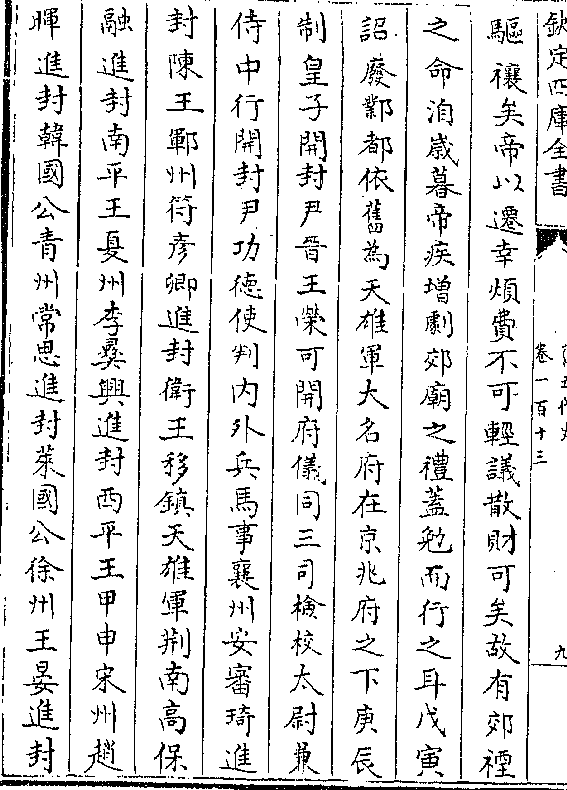 欽定四庫全書
卷一百十三
九
驅禳矣帝以遷幸煩費不可輕議散財可矣故有郊禋
之命洎歲暮帝疾增劇郊廟之禮蓋勉而行之耳戊寅
詔廢鄴都依舊為天雄軍大名府在京兆府之下庚辰
制皇子開封尹晉王榮可開府儀同三司檢校太尉兼
侍中行開封尹功德使判內外兵馬事襄州安審琦進
封陳王鄆州符彥卿進封衛王移鎮天雄軍荆南高保
融進封南平王夏州李彞興進封西平王甲申宋州趙
暉進封韓國公青州常思進封萊國公徐州王晏進封